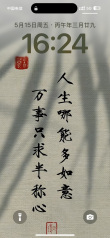 中国电信
5月15日周五 · 丙午年三月廿九
16:24
人生哪能多如意
万事只求半称心